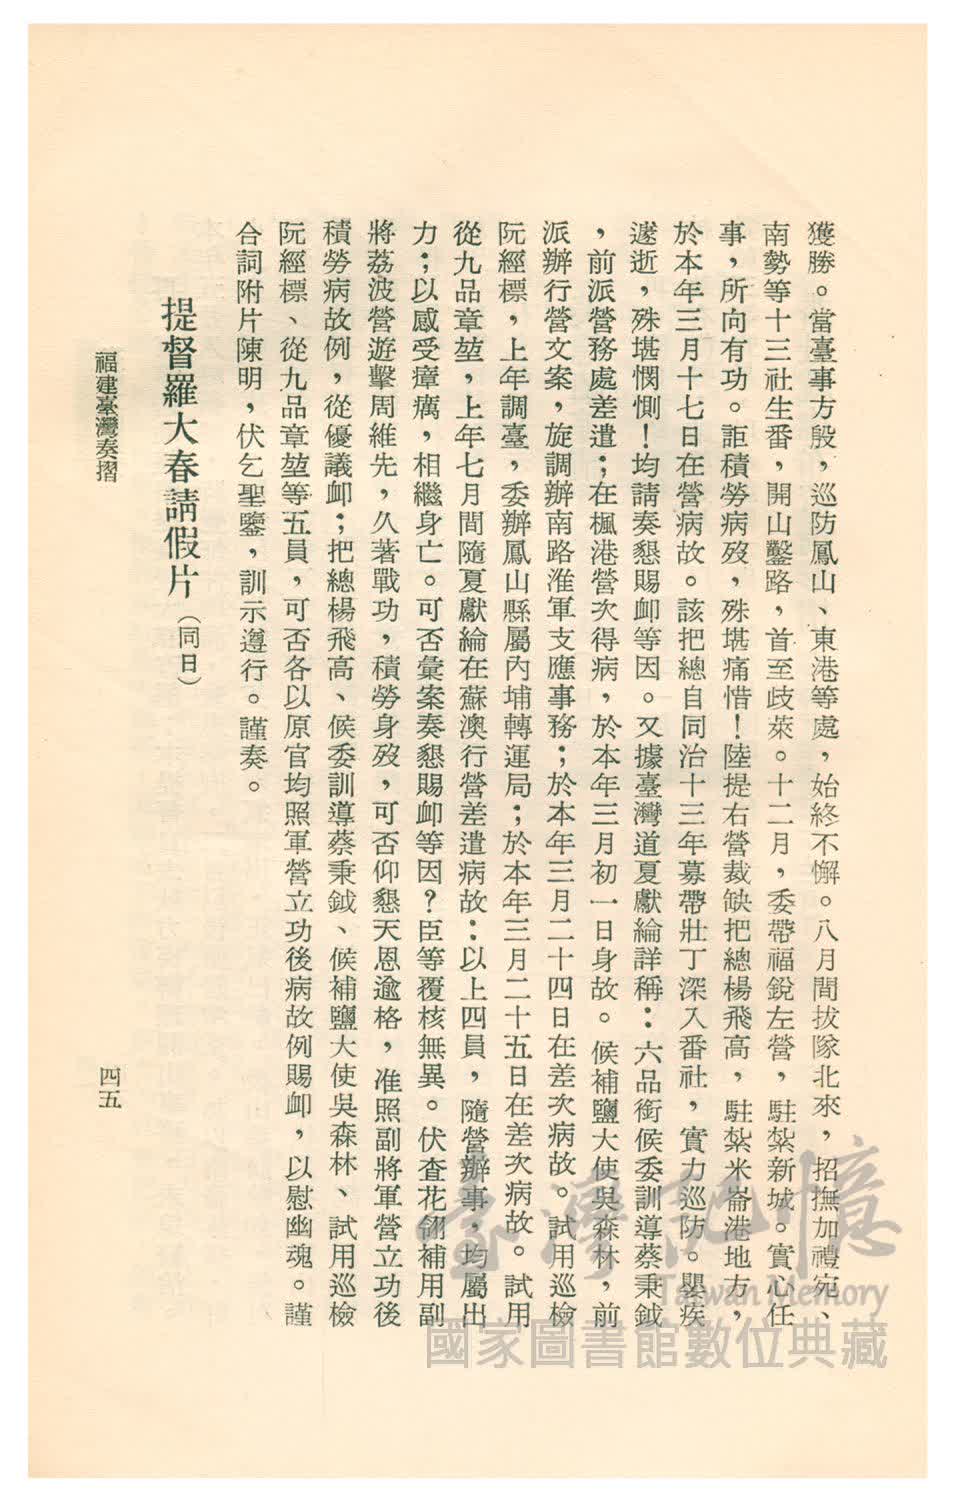 獲勝。當臺事方殷，巡防鳳山、東港等處，始終不懈。八月間拔隊北來，招撫加禮宛、
南勢等十三社生番，開山鑿路，首至歧萊。十二月，委帶福銳左營，駐紮新城。實心任
事，所向有功。詎積勞病歿，殊堪痛惜！陸提右營裁缺把總楊飛高，駐紮米崙港地方，
於本年三月十七日在營病故。該把總自同治十三年募帶壯丁深入番社，實力巡防。嬰疾
遽逝，殊堪憫惻！均請奏懇賜卹等因。又據臺灣道夏獻綸詳稱：六品銜候委訓導蔡秉鉞
，前派營務處差遣；在楓港營次得病，於本年三月初一日身故。候補鹽大使吳森林，前
派辦行營文案，旋調辦南路淮軍支應事務；於本年三月二十四日在差次病故。試用巡檢
阮經標，上年調臺，委辦鳳山縣屬內埔轉運局；於本年三月二十五日在差次病故。試用
從九品章堃，上年七月間隨夏獻綸在蘇澳行營差遣病故：以上四員，隨營辦事，均屬出
力；以感受瘴癘，相繼身亡。可否彙案奏懇賜卹等因？臣等覆核無異。伏查花翎補用副
將荔波營遊擊周維先，久著戰功，積勞身歿，可否仰懇天恩逾格，准照副將軍營立功後
積勞病故例，從優議卹；把總楊飛高、候委訓導蔡秉鉞、候補鹽大使吳森林、試用巡檢
阮經標、從九品章堃等五員，可否各以原官均照軍營立功後病故例賜卹，以慰幽魂。謹
合詞附片陳明，伏乞聖鑒，訓示遵行。謹奏。
提督羅大春請假片（同日）
福建臺灣奏摺
四五
臺灣記憶
Taiwan Memory
國家圖書館數位典藏